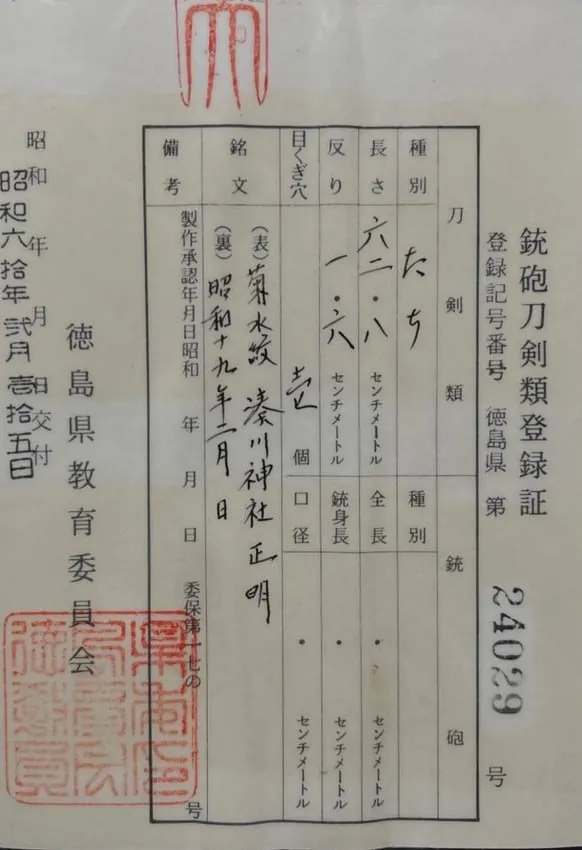 銃砲刀剣類登録証
登録記号番号 徳島県 第 24029 号
刀剣類 銃砲
種別 たち 種別
長さ 六二・八 センチメートル 全長 ・ センチメートル
反り 一・六 センチメートル 銃身長 ・ センチメートル
目くぎ穴 壱 個 口径 ・ センチメートル
銘文 (表) 菊水紋 湊川神社 正明
(裏) 昭和十九年二月 日
備考 製作承認年月日昭和 年 月 日 委保第一七の 号
徳島県教育委員会
昭和 年 月 日交付
昭和六拾年弐月壱拾五日